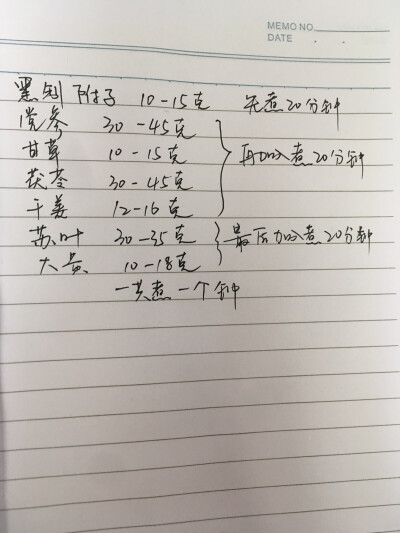 MEMO NO.
DATE . .
黑制附子 10-15克 先煮20分钟
党参 30-45克
甘草 10-15克 再加入煮20分钟
茯苓 30-45克
干姜 12-16克
苏叶 30-35克 最后加入煮20分钟
大黄 10-18克
一共煮一个钟